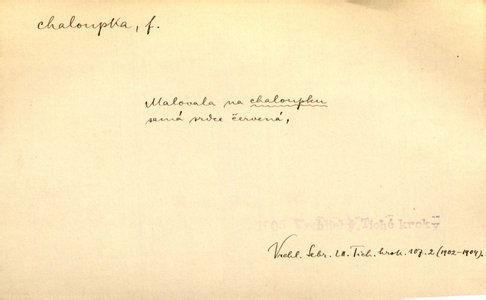 chaloupka, f.
Malovala na chaloupku
samá srdce červená,
Vrchlický, Tiché kroky
Vrchl. Sebr. LII. Tich. krok. 107.2 (1902-1904).